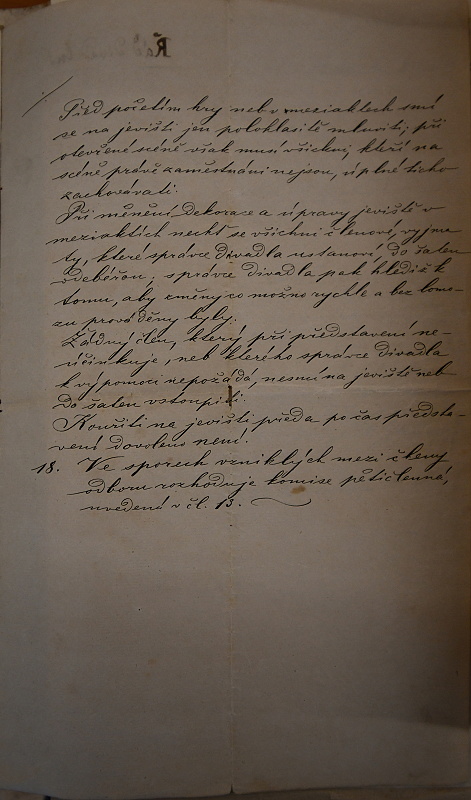 Před početím hry neb v meziaktech smí
se na jevišti jen polohlasitě mluviti; při
otevřené scéně však musí všichni, kteří na
scéně právě zaměstnáni nejsou, úplné ticho
zachovávati.
Při měnění dekorace a úpravy jeviště v
meziaktích nechť se všichni členové, vyjma
ty, které správce divadla ustanoví, do šaten
odebéřou; správce divadla pak hlediž k
tomu, aby změny co možno rychle a bez lomo-
zu prováděny byly.
Žádný člen, který při představení ne-
účinkuje, neb kterého správce divadla
k výpomoci nepožádá, nesmí na jeviště neb
do šaten vstoupiti.
Kouřiti na jevišti před a po čas předsta-
vení dovoleno není.
18. Ve sporech vzniklých mezi členy
odboru rozhoduje komise pětičlenná,
uvedená v čl. 13.